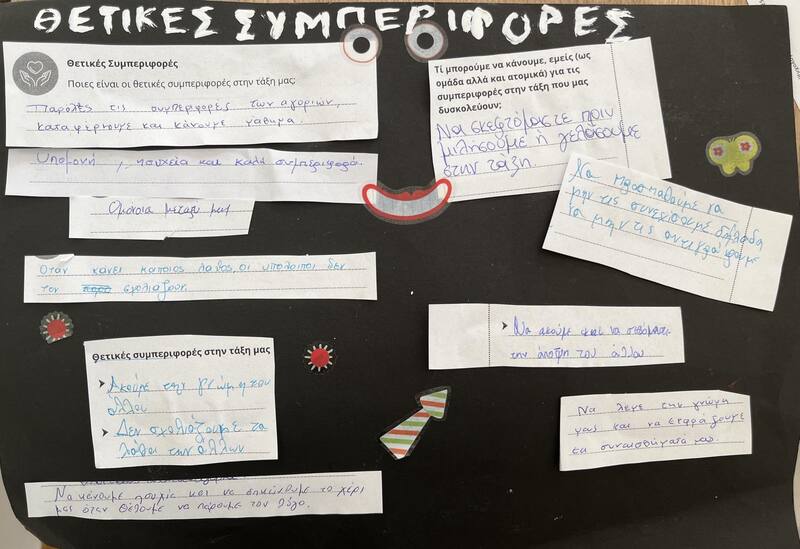 ΘΕΤΙΚΕΣ ΣΥΜΠΕΡΙΦΟΡΕΣ
Θετικές Συμπεριφορές
Ποιες είναι οι θετικές συμπεριφορές στην τάξη μας;
Παρόλες τις συμπεριφορές των αγοριών,
καταφέρνουμε και κάνουμε μάθημα.
Υπομονή, ησυχεία και καλή συμπεριφορά.
Ομόνοια μεταξύ μας
Όταν κάνει κάποιος λάθος, οι υπόλοιποι δεν
τον σχολιάζουν.
Θετικές συμπεριφορές στην τάξη μας
➤ Ακούμε την γνώμη του
άλλου
➤ Δεν σχολιάζουμε τα
λάθη των άλλων
Να κάνουμε ησυχία και να σηκώνουμε το χέρι
μας όταν θέλουμε να πάρουμε τον λόγο.
Τί μπορούμε να κάνουμε, εμείς (ως
ομάδα αλλά και ατομικά) για τις
συμπεριφορές στην τάξη που μας
δυσκολεύουν;
Να σκεφτόμαστε πριν
μιλήσουμε ή γελάσουμε
στην τάξη.
Να προσπαθούμε να
μην τις συνεχίσουμε δηλαδή
να μην τις αντιγράψουμε
➤ Να ακούμε και να σεβόμαστε
την άποψη του άλλου
Να λέμε την γνώμη
μας και να
τα συναισθήματά μας.